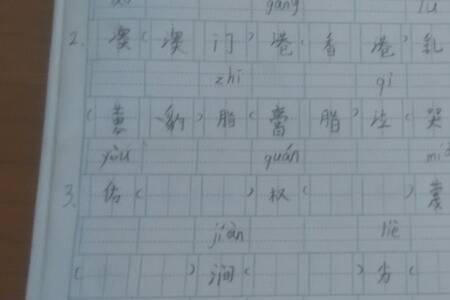 gǎng
2. 澳（澳门）港（香港）乳
zhī qì
脂（膏脂）泣（哭
yòu quán
3. 佑（ ）权（ ）
jiàn liè
（ ）涧（ ）劣（